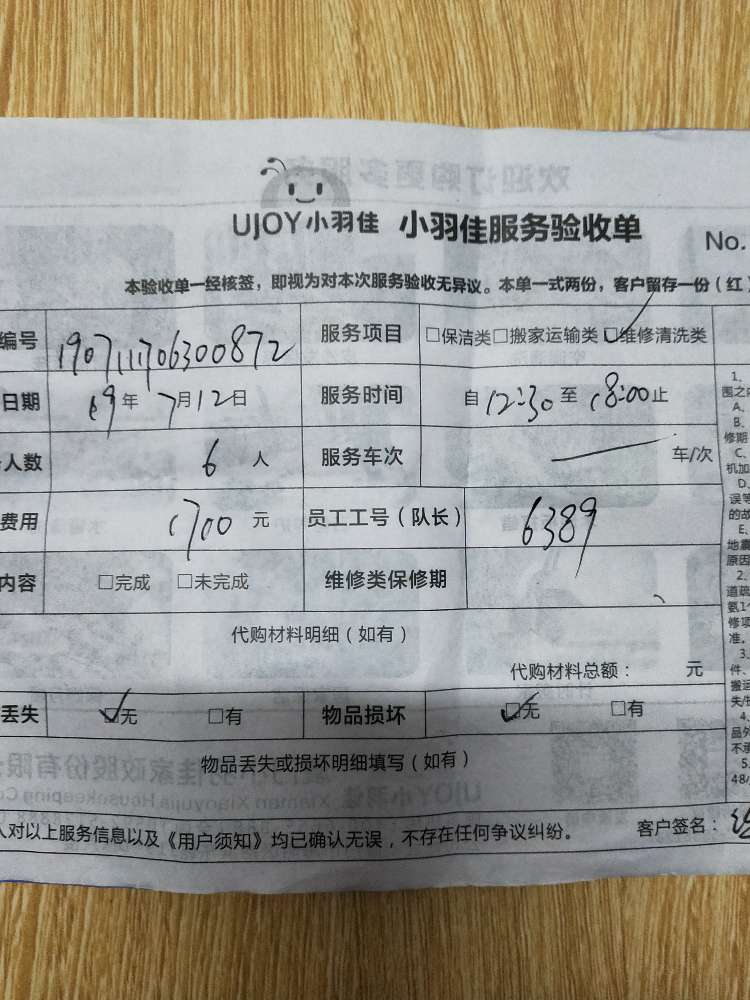 UJOY小羽佳 小羽佳服务验收单
No.
本验收单一经核签，即视为对本次服务验收无异议。本单一式两份，客户留存一份（红）
编号 1907111706300872 服务项目 □保洁类□搬家运输类☑维修清洗类
日期 19年7月12日 服务时间 自12:30至18:00止
人数 6人 服务车次 车/次
费用 1700元 员工工号（队长） 6389
内容 □完成 □未完成 维修类保修期
代购材料明细（如有）
代购材料总额： 元
丢失 ☑无 □有 物品损坏 ☑无 □有
物品丢失或损坏明细填写（如有）
人对以上服务信息以及《用户须知》均已确认无误，不存在任何争议纠纷。 客户签名：
1、
围之
A、
B、
修期
C、
机加
D、
误等
的故
E、
地震
原因
2、
道疏
氨1个
修项
准。
3、
件、
搬运
失/
4、
品外
不承
5、
48小